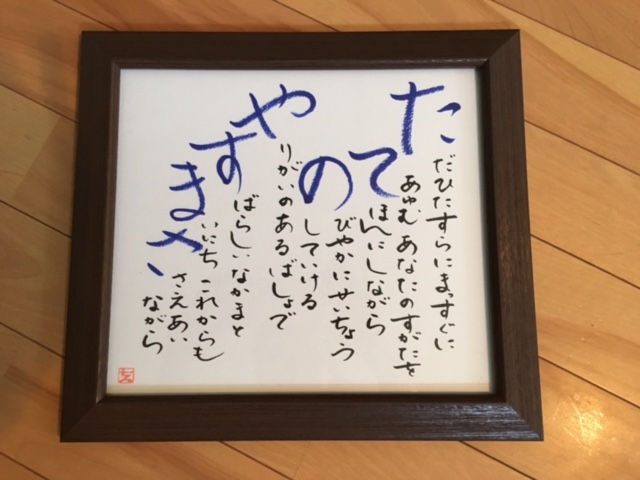 ただひたすらにまっすぐに
あゆむ あなたのすがたを
てほんにしながら
のびやかにせいちょう
していける
やりがいのあるばしょで
すばらしいなかまと
まいにち これからも
ささえあい
ながら